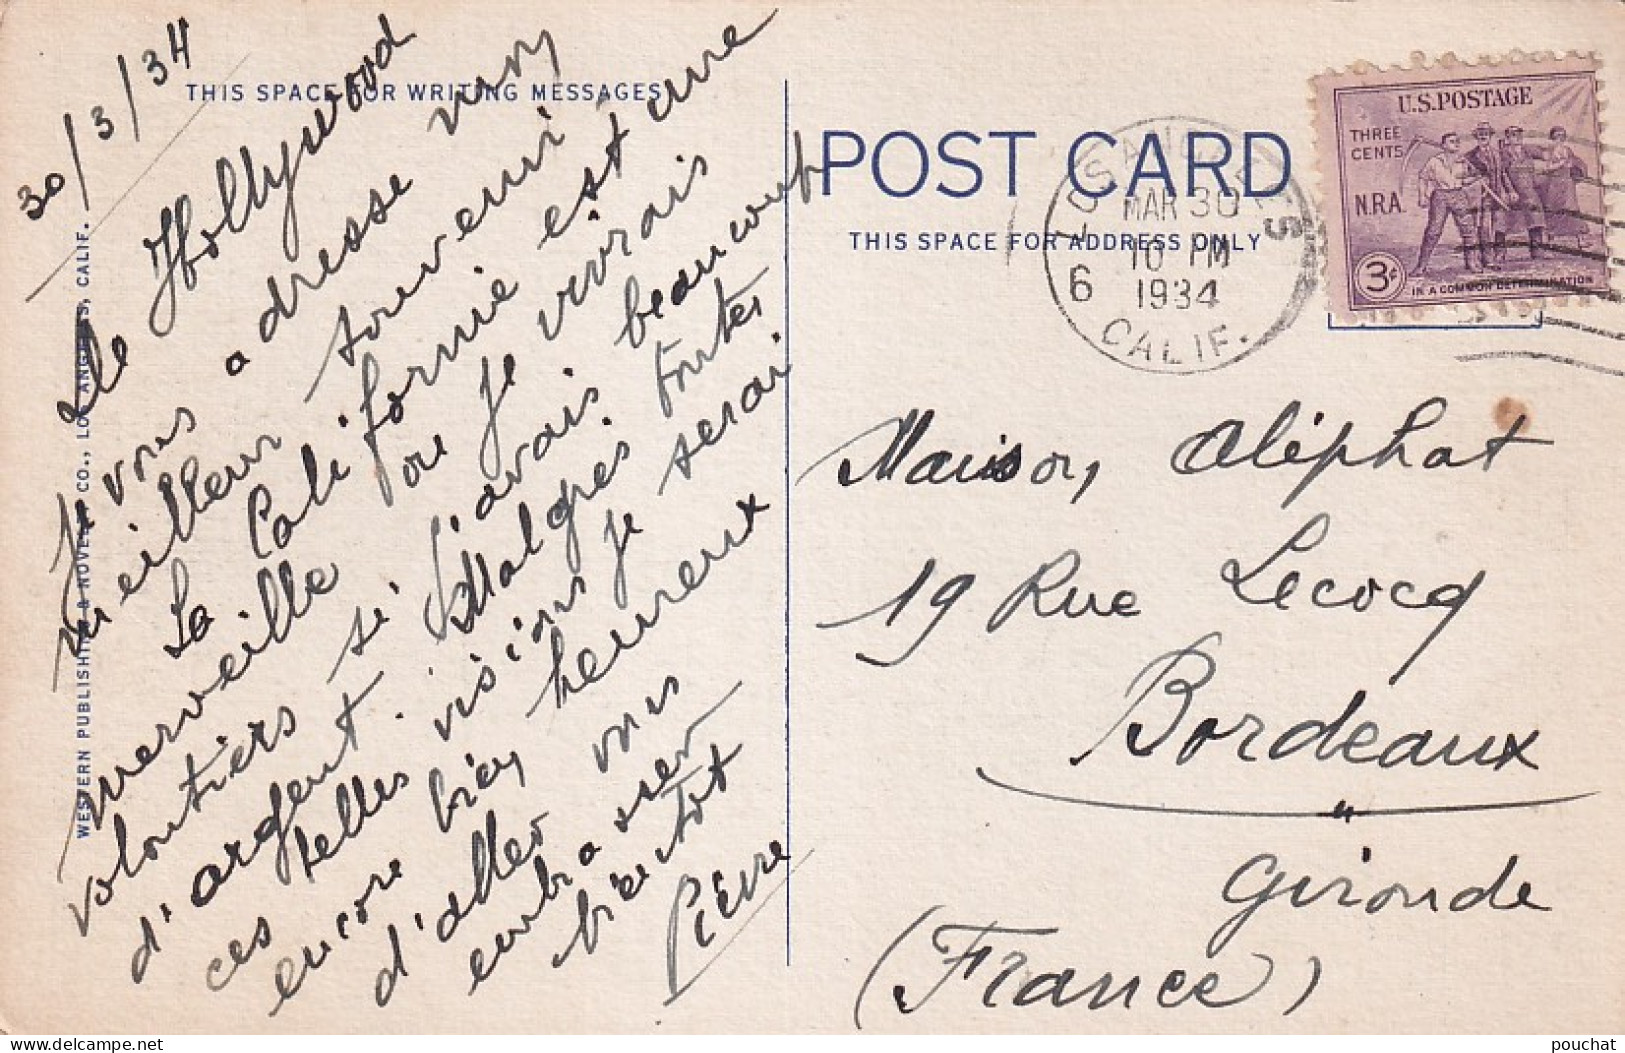 30/3/34
THIS SPACE FOR WRITING MESSAGES
De Hollywood
Je vous adresse mon
meilleur souvenir
La Californie est une
merveille ou je vivrais
volontiers si j'avais beaucoup
d'argent. Malgres toutes
ces belles visions je serai
encore bien heureux
d'aller vous
embrasser
bientot
Pierre
WESTERN PUBLISHING & NOVELTY CO., LOS ANGELES, CALIF.
POST CARD
THIS SPACE FOR ADDRESS ONLY
LOS ANGELES
MAR 30
10 PM
1934
6
CALIF.
U.S. POSTAGE
THREE
CENTS
N.R.A.
3¢
IN A COMMON DETERMINATION
Maison Aliphat
19 Rue Lecocq
Bordeaux
"
Gironde
(France)
pouchat